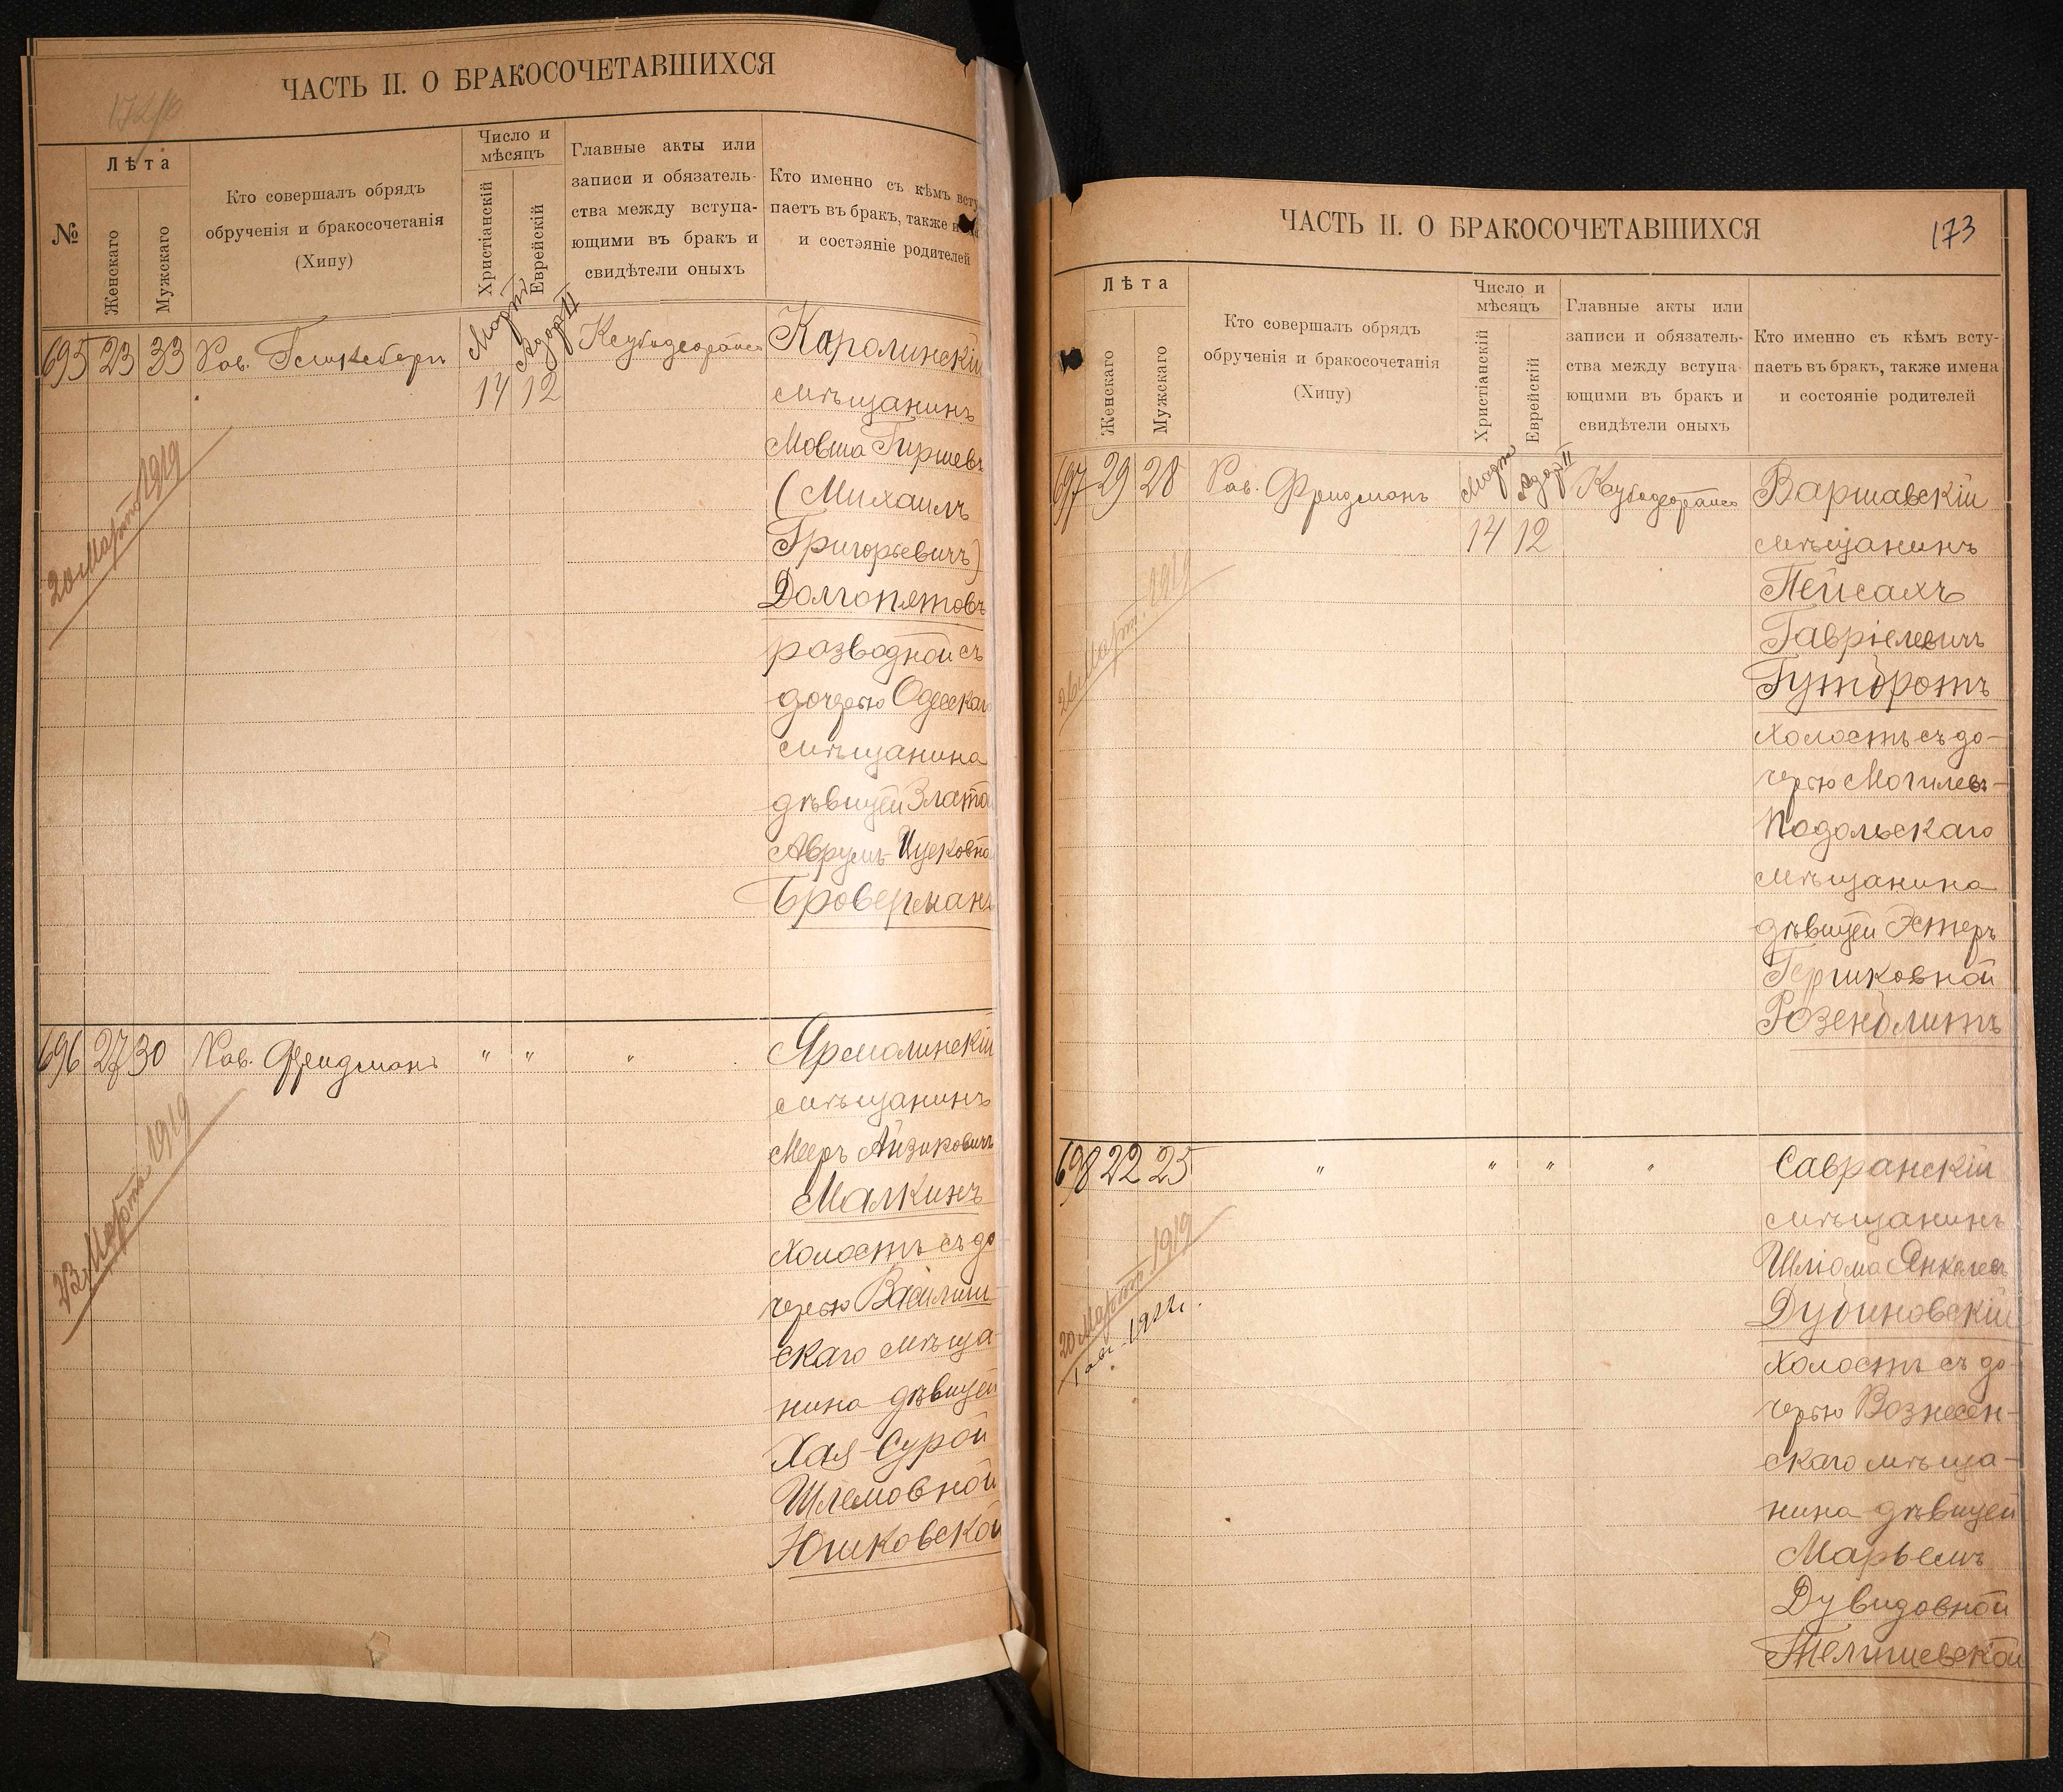 ЧАСТЬ II. О БРАКОСОЧЕТАВШИХСЯ
№
Лѣта
Женскаго
Мужскаго
Кто совершалъ обрядъ
обрученія и бракосочетанія
(Хипу)
Число и
мѣсяцъ
Христіанскій
Еврейскій
Главные акты или
записи и обязатель-
ства между вступа-
ющими въ бракъ и
свидѣтели оныхъ
Кто именно съ кѣмъ всту
паетъ въ бракъ, также
и состояніе родителей
695 23 33 Рав.
Мартъ Адаръ II
14 12
Каролинскій
мѣщанинъ
Мовша Гиршевъ
(Михаилъ
Григорьевичъ)
Долгопятовъ
разводной съ
дочерью Одесскаго
мѣщанина
дѣвицей Златой
Аврумъ-Ицковной
Броверманъ
20 Марта 1919
696 27 30 Рав. Фридманъ " " "
Ярмолинскій
мѣщанинъ
Мееръ Айзиковичъ
Малкинъ
холостъ съ до
черью Василиш-
скаго мѣща-
нина дѣвицей
Хая-Сурой
Шлемовной
Юшковской
Марта 1919
ЧАСТЬ II. О БРАКОСОЧЕТАВШИХСЯ
173
Лѣта
Женскаго
Мужскаго
Кто совершалъ обрядъ
обрученія и бракосочетанія
(Хипу)
Число и
мѣсяцъ
Христіанскій
Еврейскій
Главные акты или
записи и обязатель-
ства между вступа-
ющими въ бракъ и
свидѣтели оныхъ
Кто именно съ кѣмъ всту-
паетъ въ бракъ, также имена
и состояніе родителей
697 29 28 Рав. Фридманъ
Мартъ Адаръ II
14 12
Варшавскій
мѣщанинъ
Пейсахъ
Гавріелевичъ
Гутбротъ
холостъ съ до-
черью Могилевъ-
Подольскаго
мѣщанина
дѣвицей Эстеръ
Гершковной
Розенблитъ
26 Март. 1919
698 22 25 " " " "
Савранскій
мѣщанинъ
Шліома Янкелевъ
Дубиновскій
холостъ съ до-
черью Вознесен-
скаго мѣща-
нина дѣвицей
Марьемъ
Дувидовной
Тельшевской
20 Марта 1919